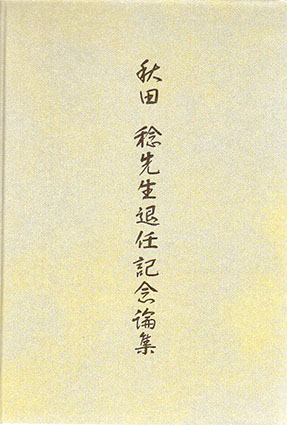 秋田 稔先生退任記念論集